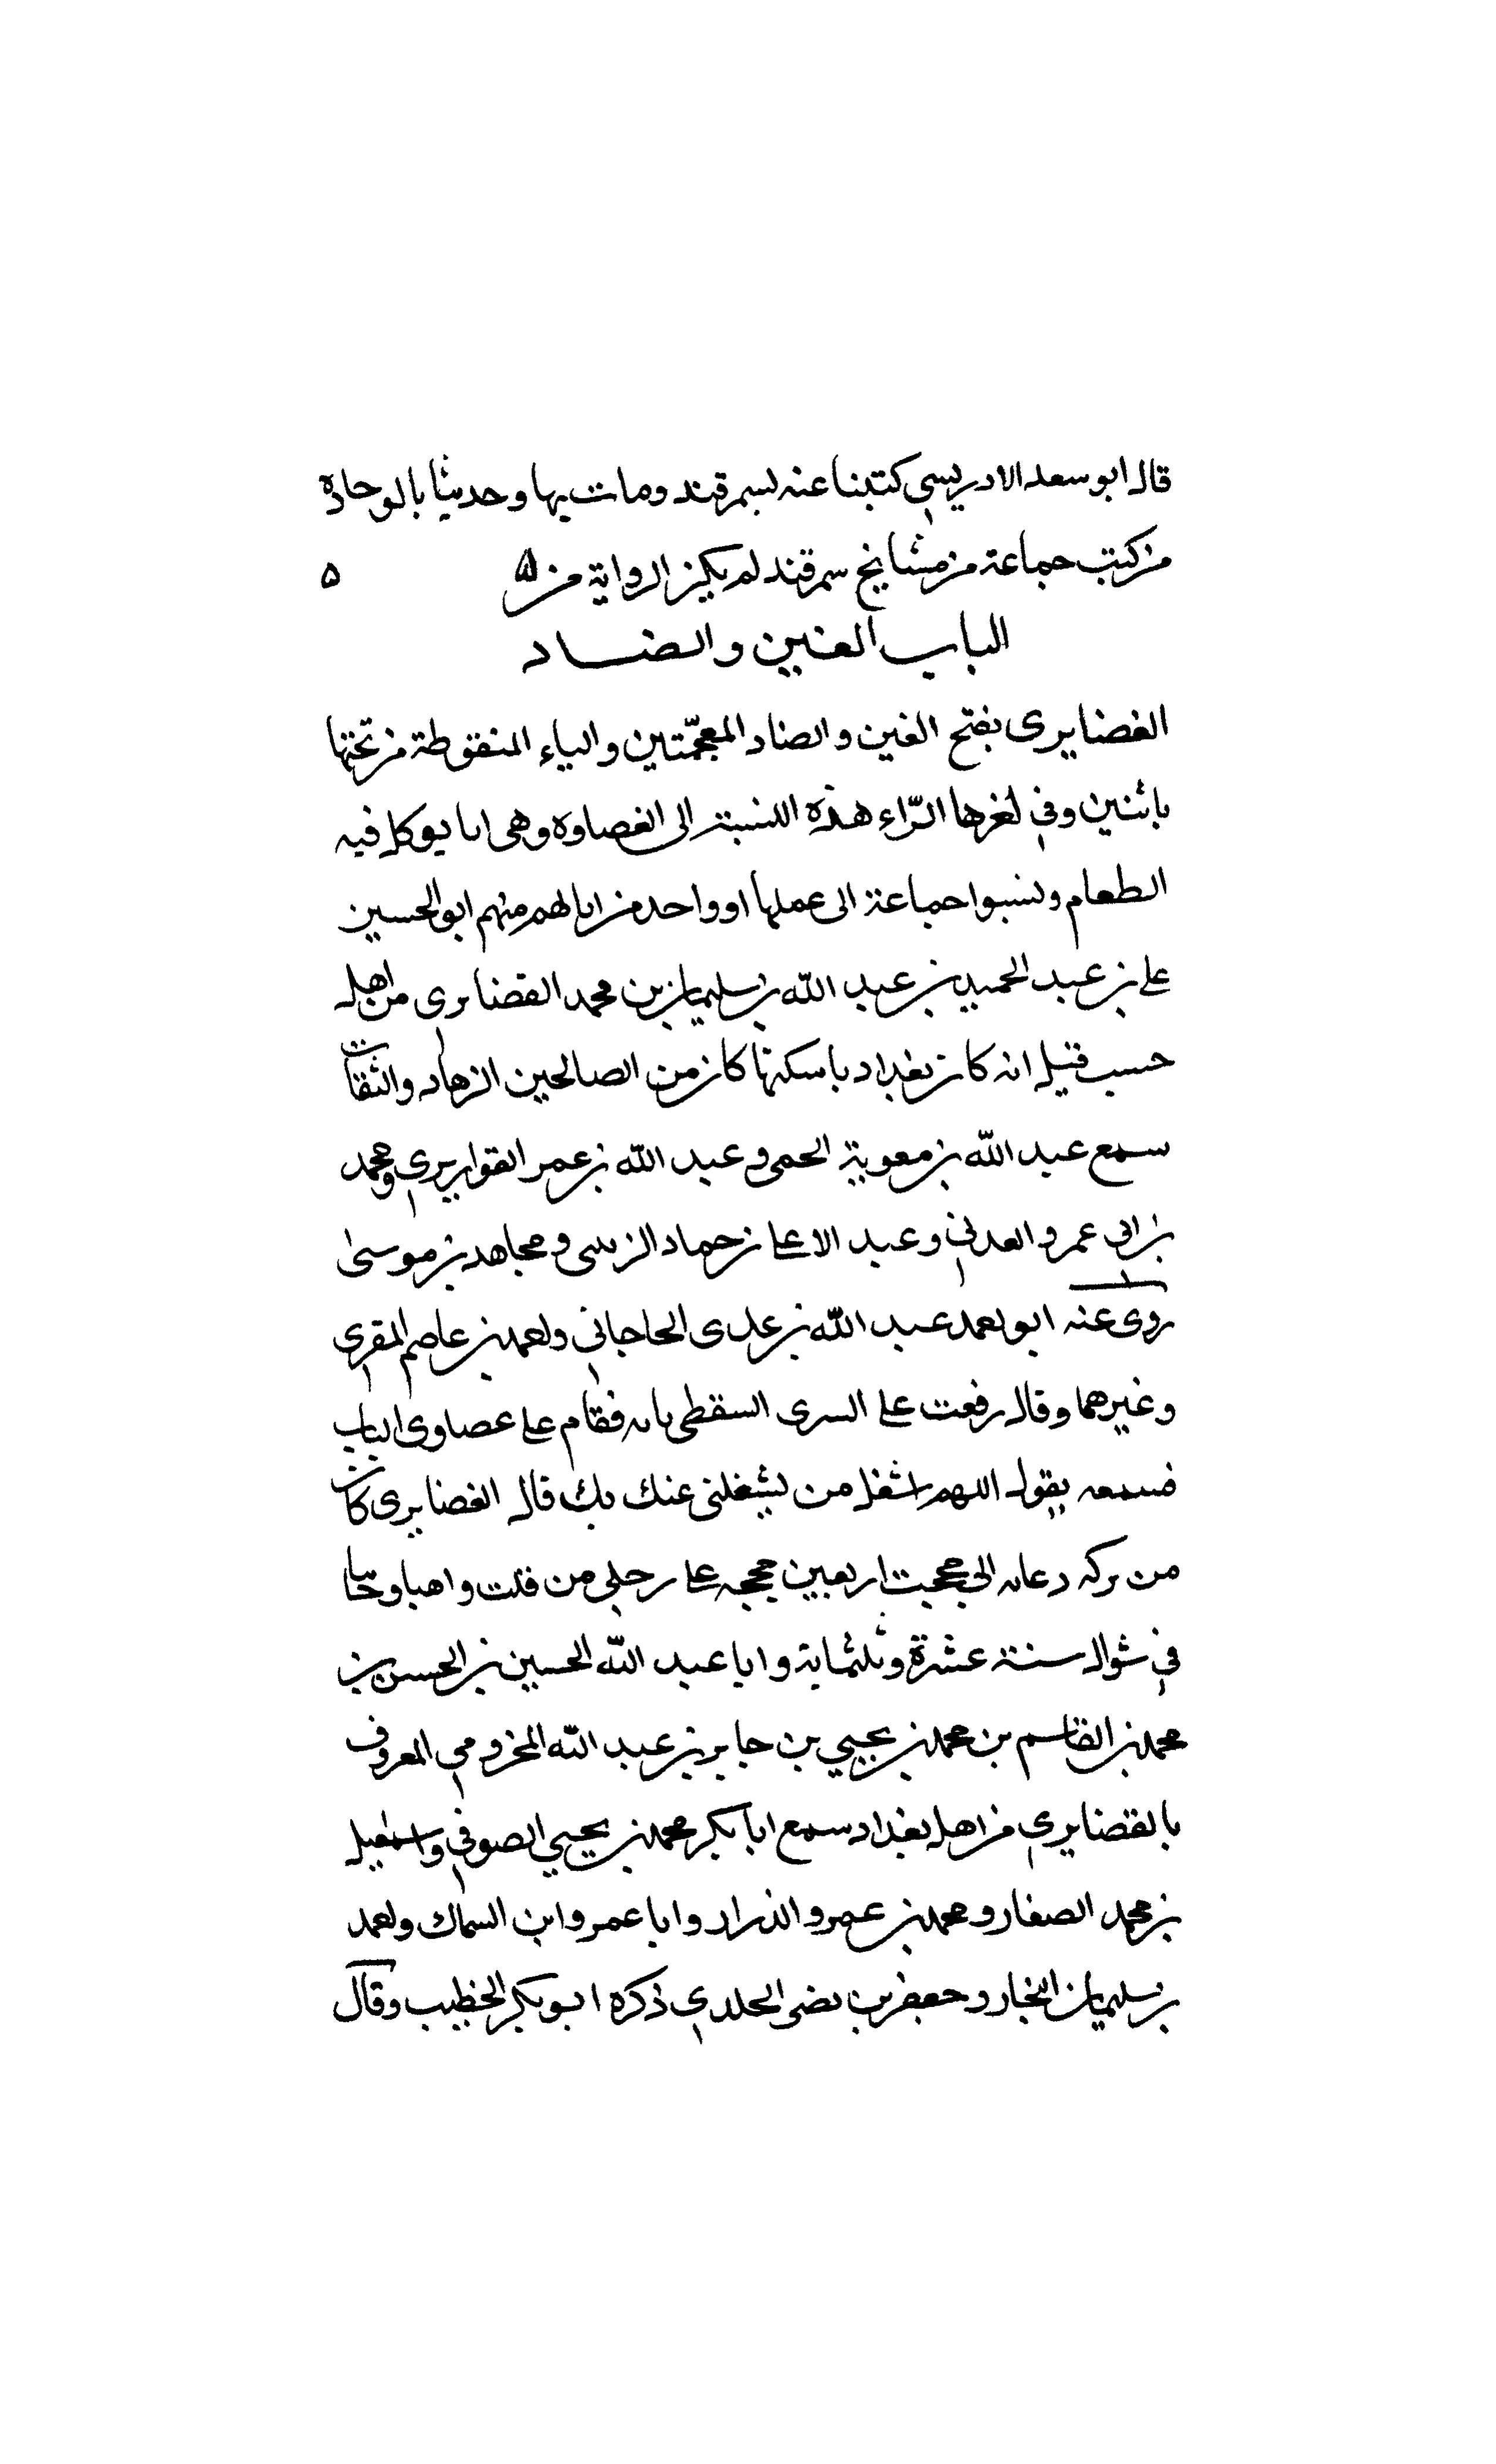 قال ابو سعد الادريسي كتبنا عنه بسمرقند ومات بها وحدثنا بالوجادة
من كتب جماعة من مشايخ سمرقند لم يكن الرواية من ه
الباب الغين والضاد
الغضايرى بفتح الغين والضاد المعجمتين والياء المنقوطة من تحتها
باثنين وفي اخرها الرّاء هذه النسبة الى الغصاوه وهى انا يوكل فيه
الطعام ونسبوا جماعة الى عملها او واحد من ابا لهم منهم ابو الحسين
على بن عبد الحميد بن عبد الله بن سليمان بن محمد الغضايرى من اهل
حسب قيل انه كان بغداد با سكنها كان من الصالحين الزهاد والثقات
سمع عبد الله بن معوية الحمى وعبد الله بن عمر القواريرى ومحمد
بن ابى عمرو العدنى وعبد الاعلى بن حماد الزسى ومجاهد بن موسى
روى عنه ابو احمد عبد الله بن عدى الجاجانى واحمد بن عاصم المقرى
وغيرهما وقال رفعت على السرى السقطى بابه فقام على عصاوى الباب
فسمعه يقول اللهم اشغل من يشغلنى عنك بك قال الغضايرى كان
من بركه دعائه الى حججت اربعين حجه على رجلى من فلت واهبا وحابا
في شوال سنة عشرة وثلثماية وابا عبد الله الحسين بن الحسن بن
محمد بن القاسم بن محمد بن يحيي بن جابر بن عبد الله المخزومى المعروف
بالغضايرى من اهل بغداد سمع ابا بكر محمد بن يحيي الصوفى واسمعيل
بن محمد الصفار ومحمد بن عمرو الذرار وابا عمرو ابن السماك واحمد
بن سليمان النجار وجعفر بن نضى الجلدى ذكره ابو بكر الخطيب وقال